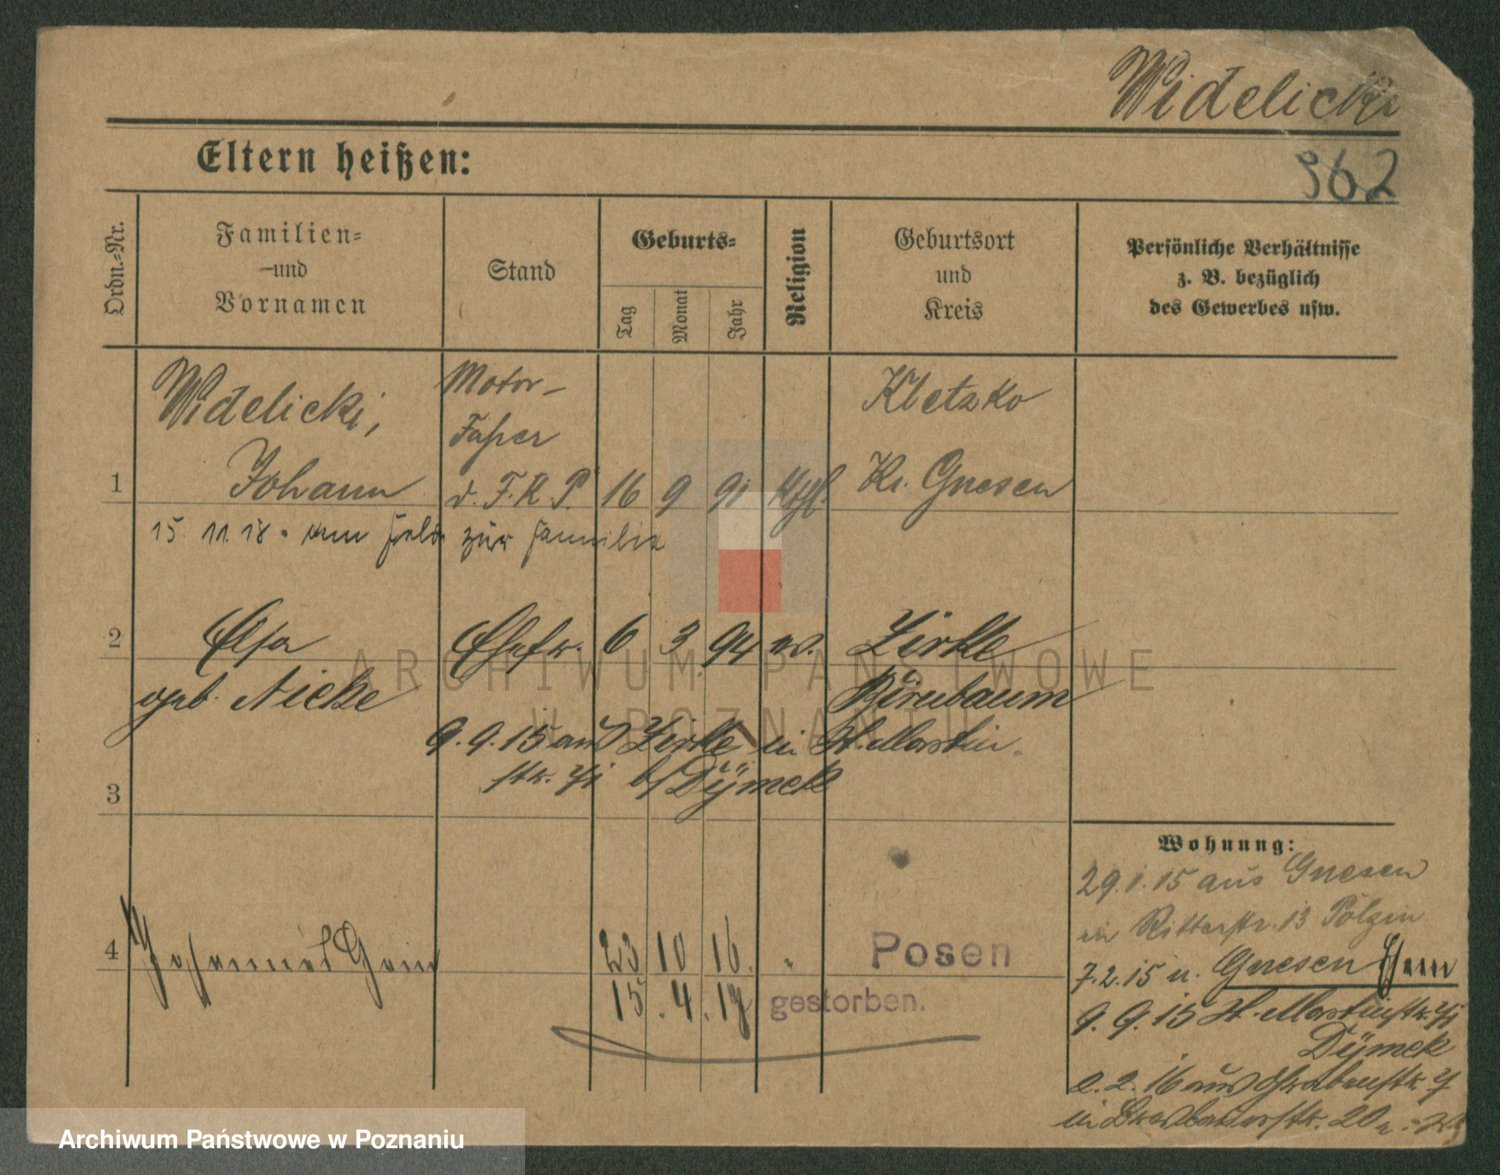 Widelicki
962
Eltern heißen:
Ordn.-Nr.
Familien- und Vornamen
Stand
Geburts-
Tag
Monat
Jahr
Religion
Geburtsort und Kreis
Persönliche Verhältnisse
z. B. bezüglich
des Gewerbes usw.
Widelicki, Motor- Kletzko
Fahrer
1 Johann d. F. K. P. 16 9 91 Kthl. Kr. Gnesen
15. 11. 18 zur Familie
2 Elsa Ehefr. 6 3 94 Zirke
geb. Nicke Birnbaum
9. 9. 15 aus Zirke in St. Martin
str. b/ Dymek
3
Wohnung:
29.1.15 aus Gnesen
in Ritterstr. 13
7.2.15 n. Gnesen
9. 9. 15 St. Martinstr.
Dymek
2. 2. 16 aus
in 20
4 23 10 16 " Posen
15. 4. 17 gestorben.
ARCHIWUM PAŃSTWOWE
W POZNANIU
Archiwum Państwowe w Poznaniu